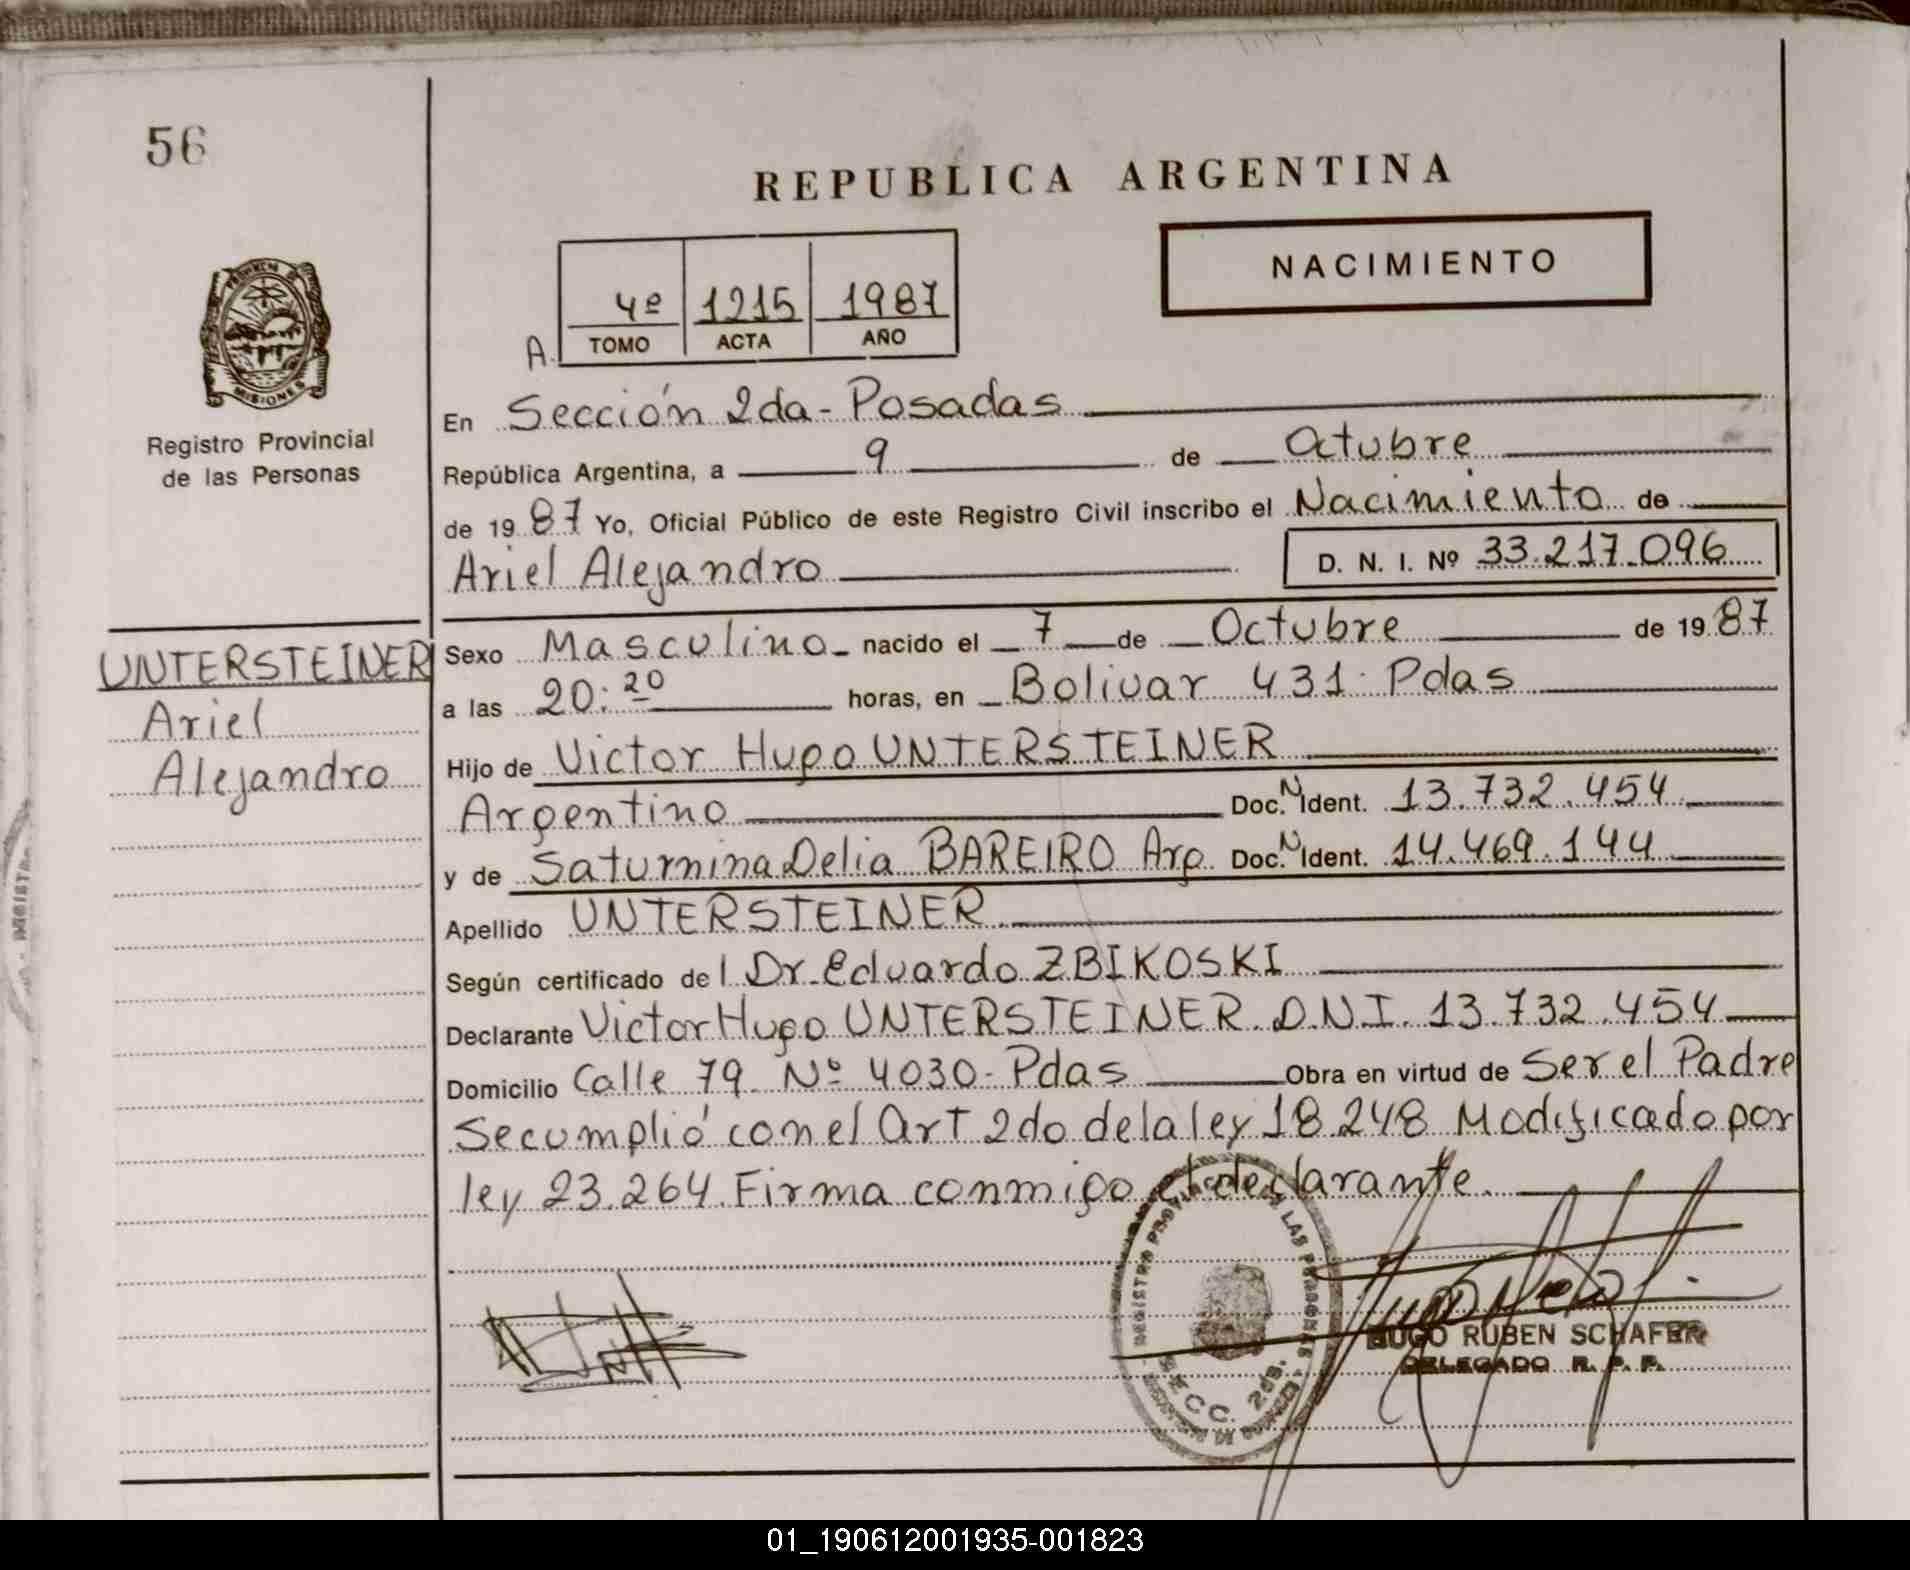 56
REPUBLICA ARGENTINA
NACIMIENTO
A. 4º 1215 1987
TOMO ACTA AÑO
PROVINCIA DE
MISIONES
Registro Provincial
de las Personas
En Sección 2da - Posadas
República Argentina, a 9 de Octubre
de 1987 Yo, Oficial Público de este Registro Civil inscribo el Nacimiento de
Ariel Alejandro D. N. I. Nº 33.217.096
UNTERSTEINER
Ariel
Alejandro
Sexo Masculino nacido el 7 de Octubre de 1987
a las 20:20 horas, en Bolivar 431 Pdas
Hijo de Victor Hugo UNTERSTEINER
Argentino Doc. N Ident. 13.732.454
y de Saturnina Delia BAREIRO Arg Doc. N Ident. 14.469.144
Apellido UNTERSTEINER
Según certificado del Dr. Eduardo ZBIKOSKI
Declarante Victor Hugo UNTERSTEINER D.N.I. 13.732.454
Domicilio Calle 79 Nº 4030 - Pdas Obra en virtud de Ser el Padre
Se cumplió con el Art 2do de la ley 18.248 Modificado por
ley 23.264. Firma conmigo el declarante.
REGISTRO PROVINCIAL DE LAS PERSONAS
SECC. 2da.
HUGO RUBEN SCHAFER
DELEGADO R. P. P.
01_190612001935-001823